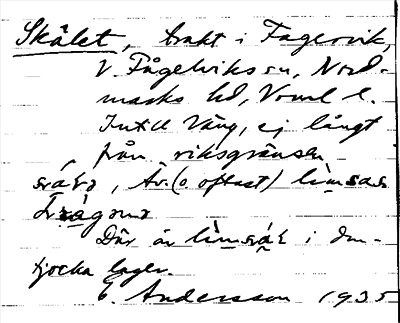 Skålet, trakt i Fagervik,
V. Fågelviks sn, Nord-
marks hd, Vrml l.
Intill Väng, ej långt
från riksgränsen
Av. (o. oftast)
Där är i den
tjocka lager.
E. Andersson 1935